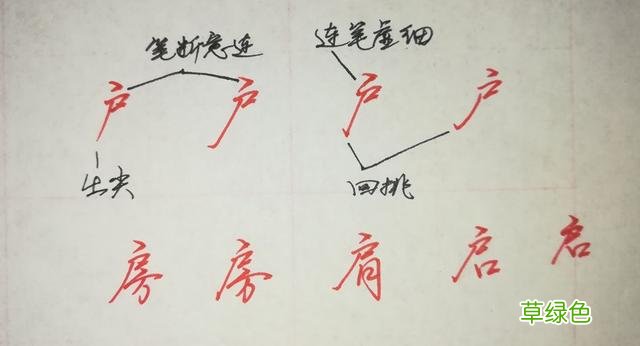 笔断意连 连笔虚细
户 户 户 户
出尖 回挑
房 房 肩 启 启
草绿色